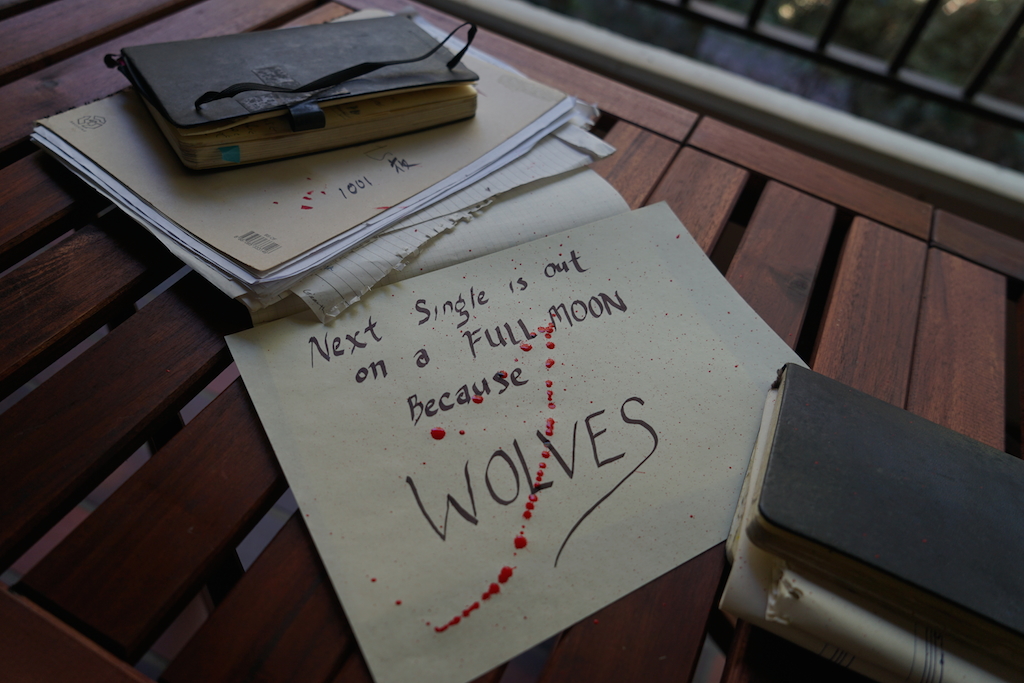 1001
Next Single is out
on a FULL MOON
Because
WOLVES